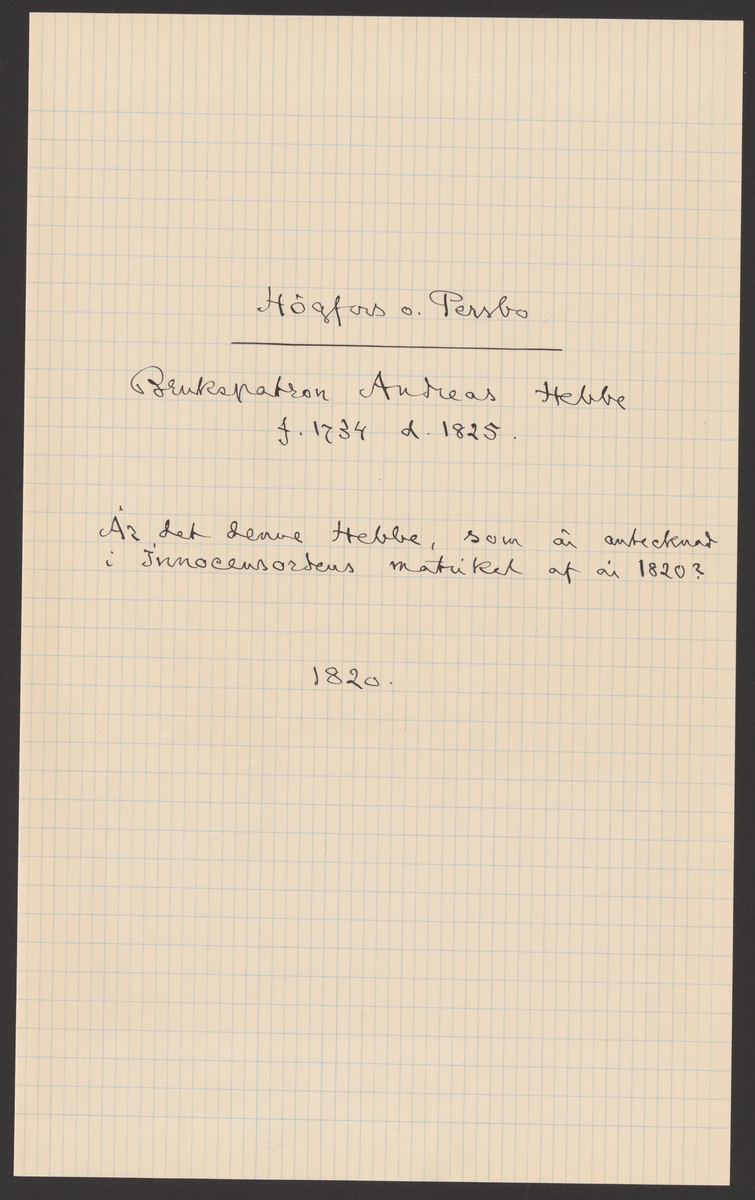 Högfors o. Persbo
Brukspatron Andreas Hebbe
f. 1734 d. 1825.
Är det denne Hebbe, som är antecknad
i Innocensordens matrikel af år 1820?
1820.